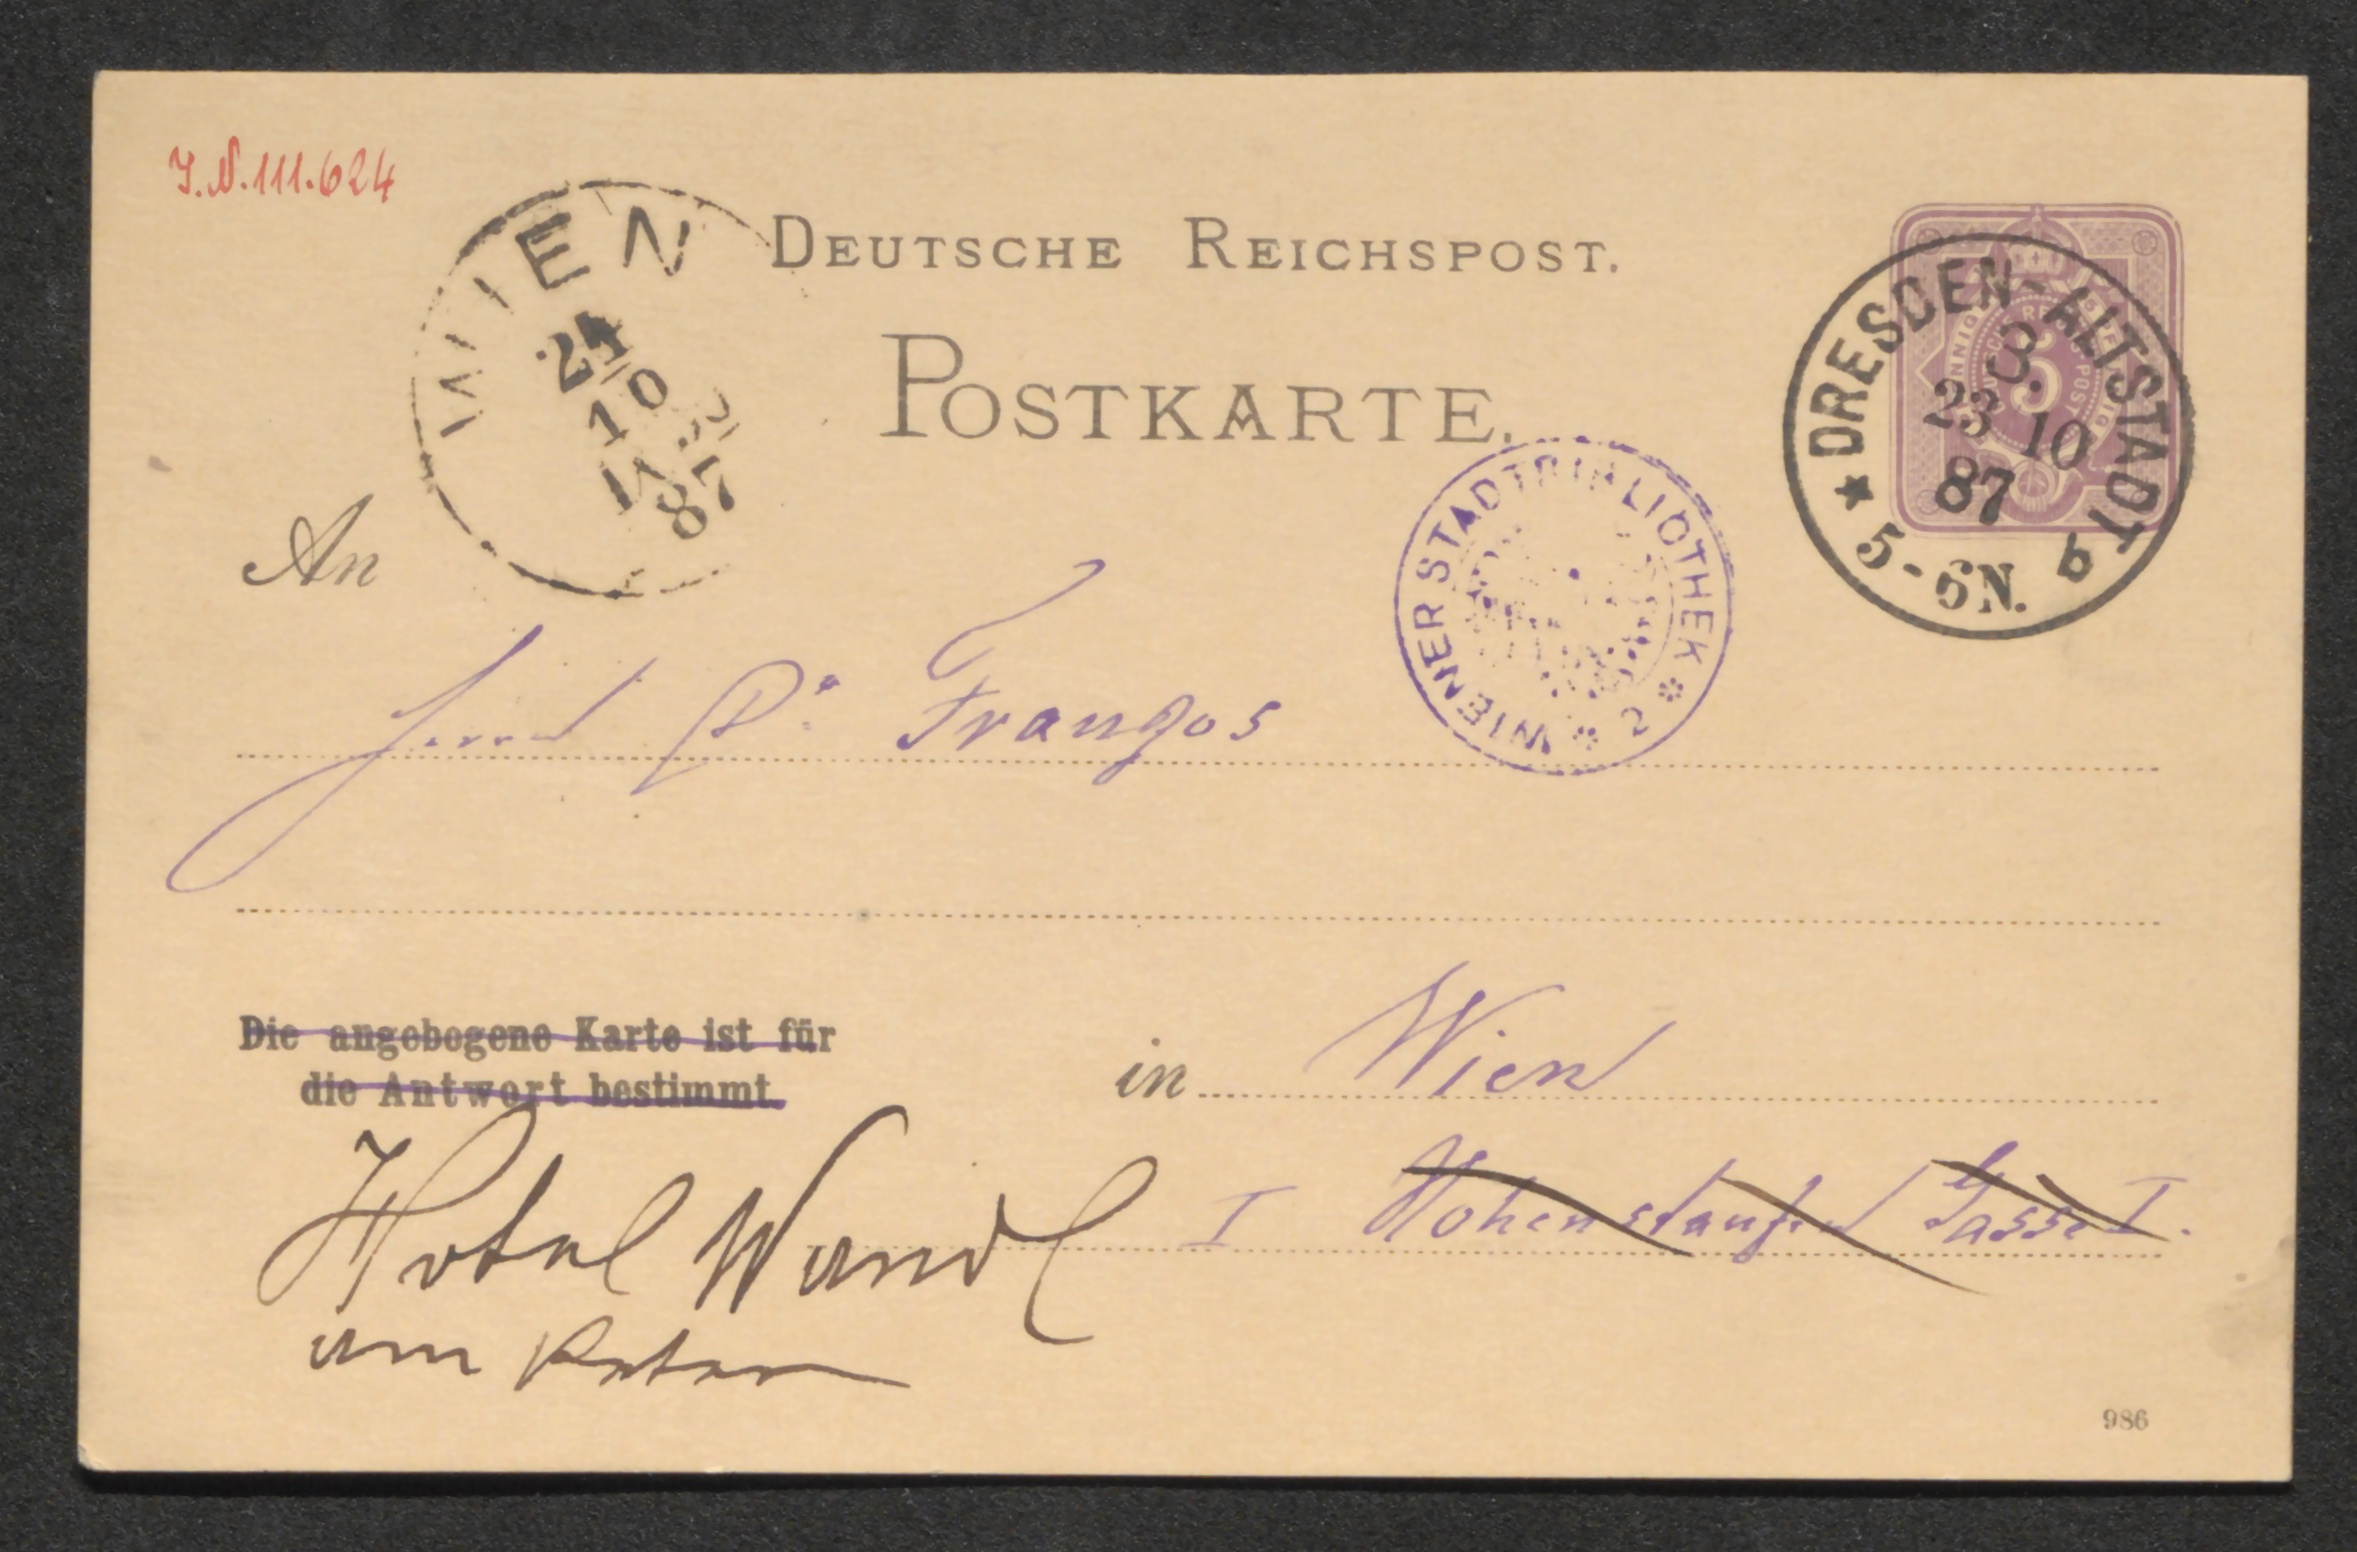 J.N. 111.624
WIEN
24
10
87
DEUTSCHE REICHSPOST.
POSTKARTE.
DRESDEN-ALTSTADT b
3.
23 10
87
5-6N.
5
WIENER STADTBIBLIOTHEK
2
An
Herrn Dr Franzos
Die angebogene Karte ist für
die Antwort bestimmt.
in Wien
I Hohenstaufen Gasse I.
Hotel Wandl
am Peter
986